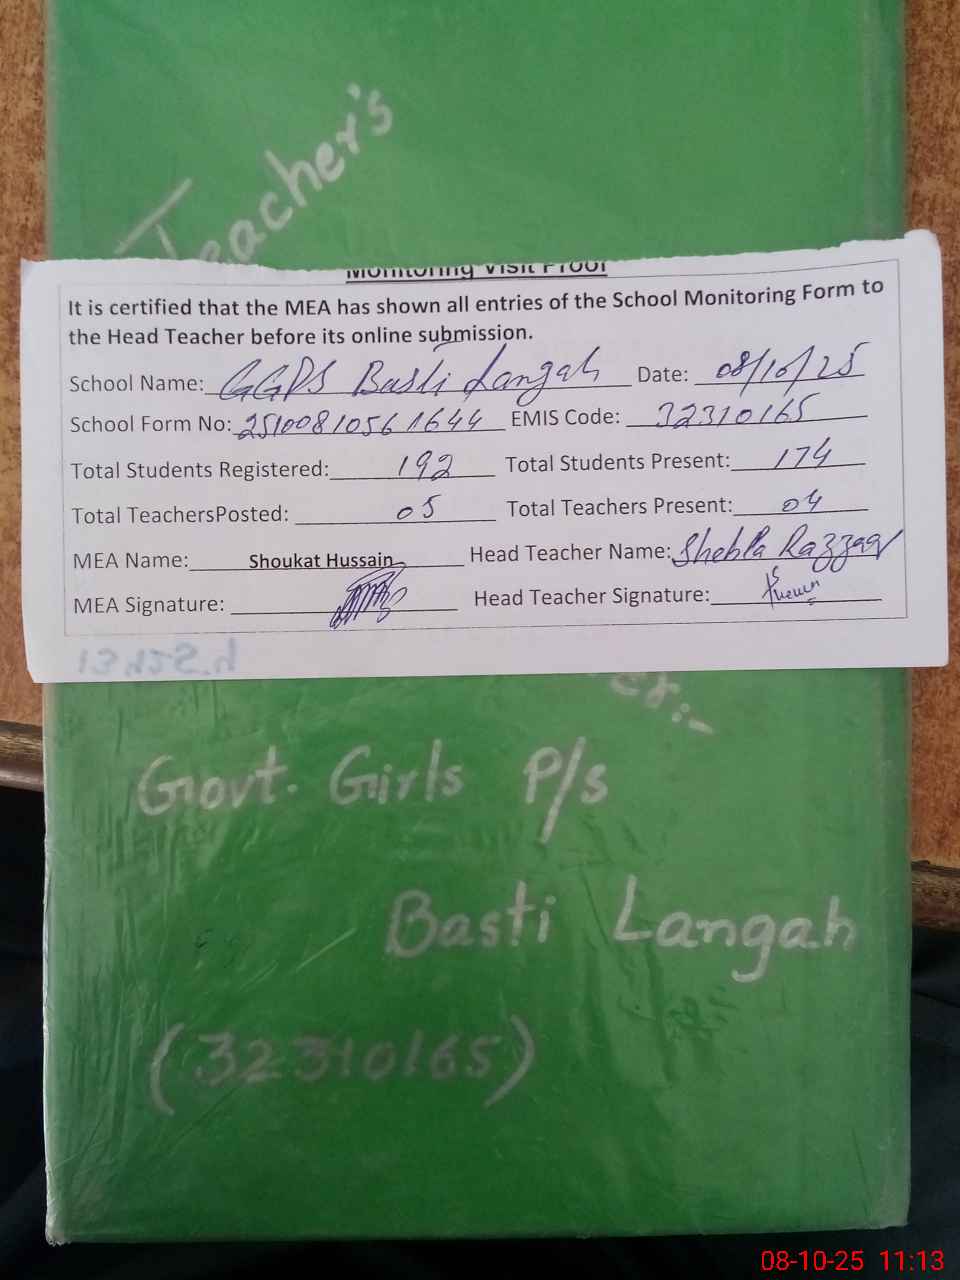 Teacher's
Monitoring Visit Proof
It is certified that the MEA has shown all entries of the School Monitoring Form to
the Head Teacher before its online submission.
School Name: GGPS Basti Langah Date: 08/10/25
School Form No: 2510081056 1644 EMIS Code: 32310165
Total Students Registered: 192 Total Students Present: 174
Total TeachersPosted: 05 Total Teachers Present: 04
MEA Name: Shoukat Hussain Head Teacher Name: Razzaq
MEA Signature: Head Teacher Signature:
Govt. Girls P/S
Basti Langah
(32310165)
08-10-25 11:13